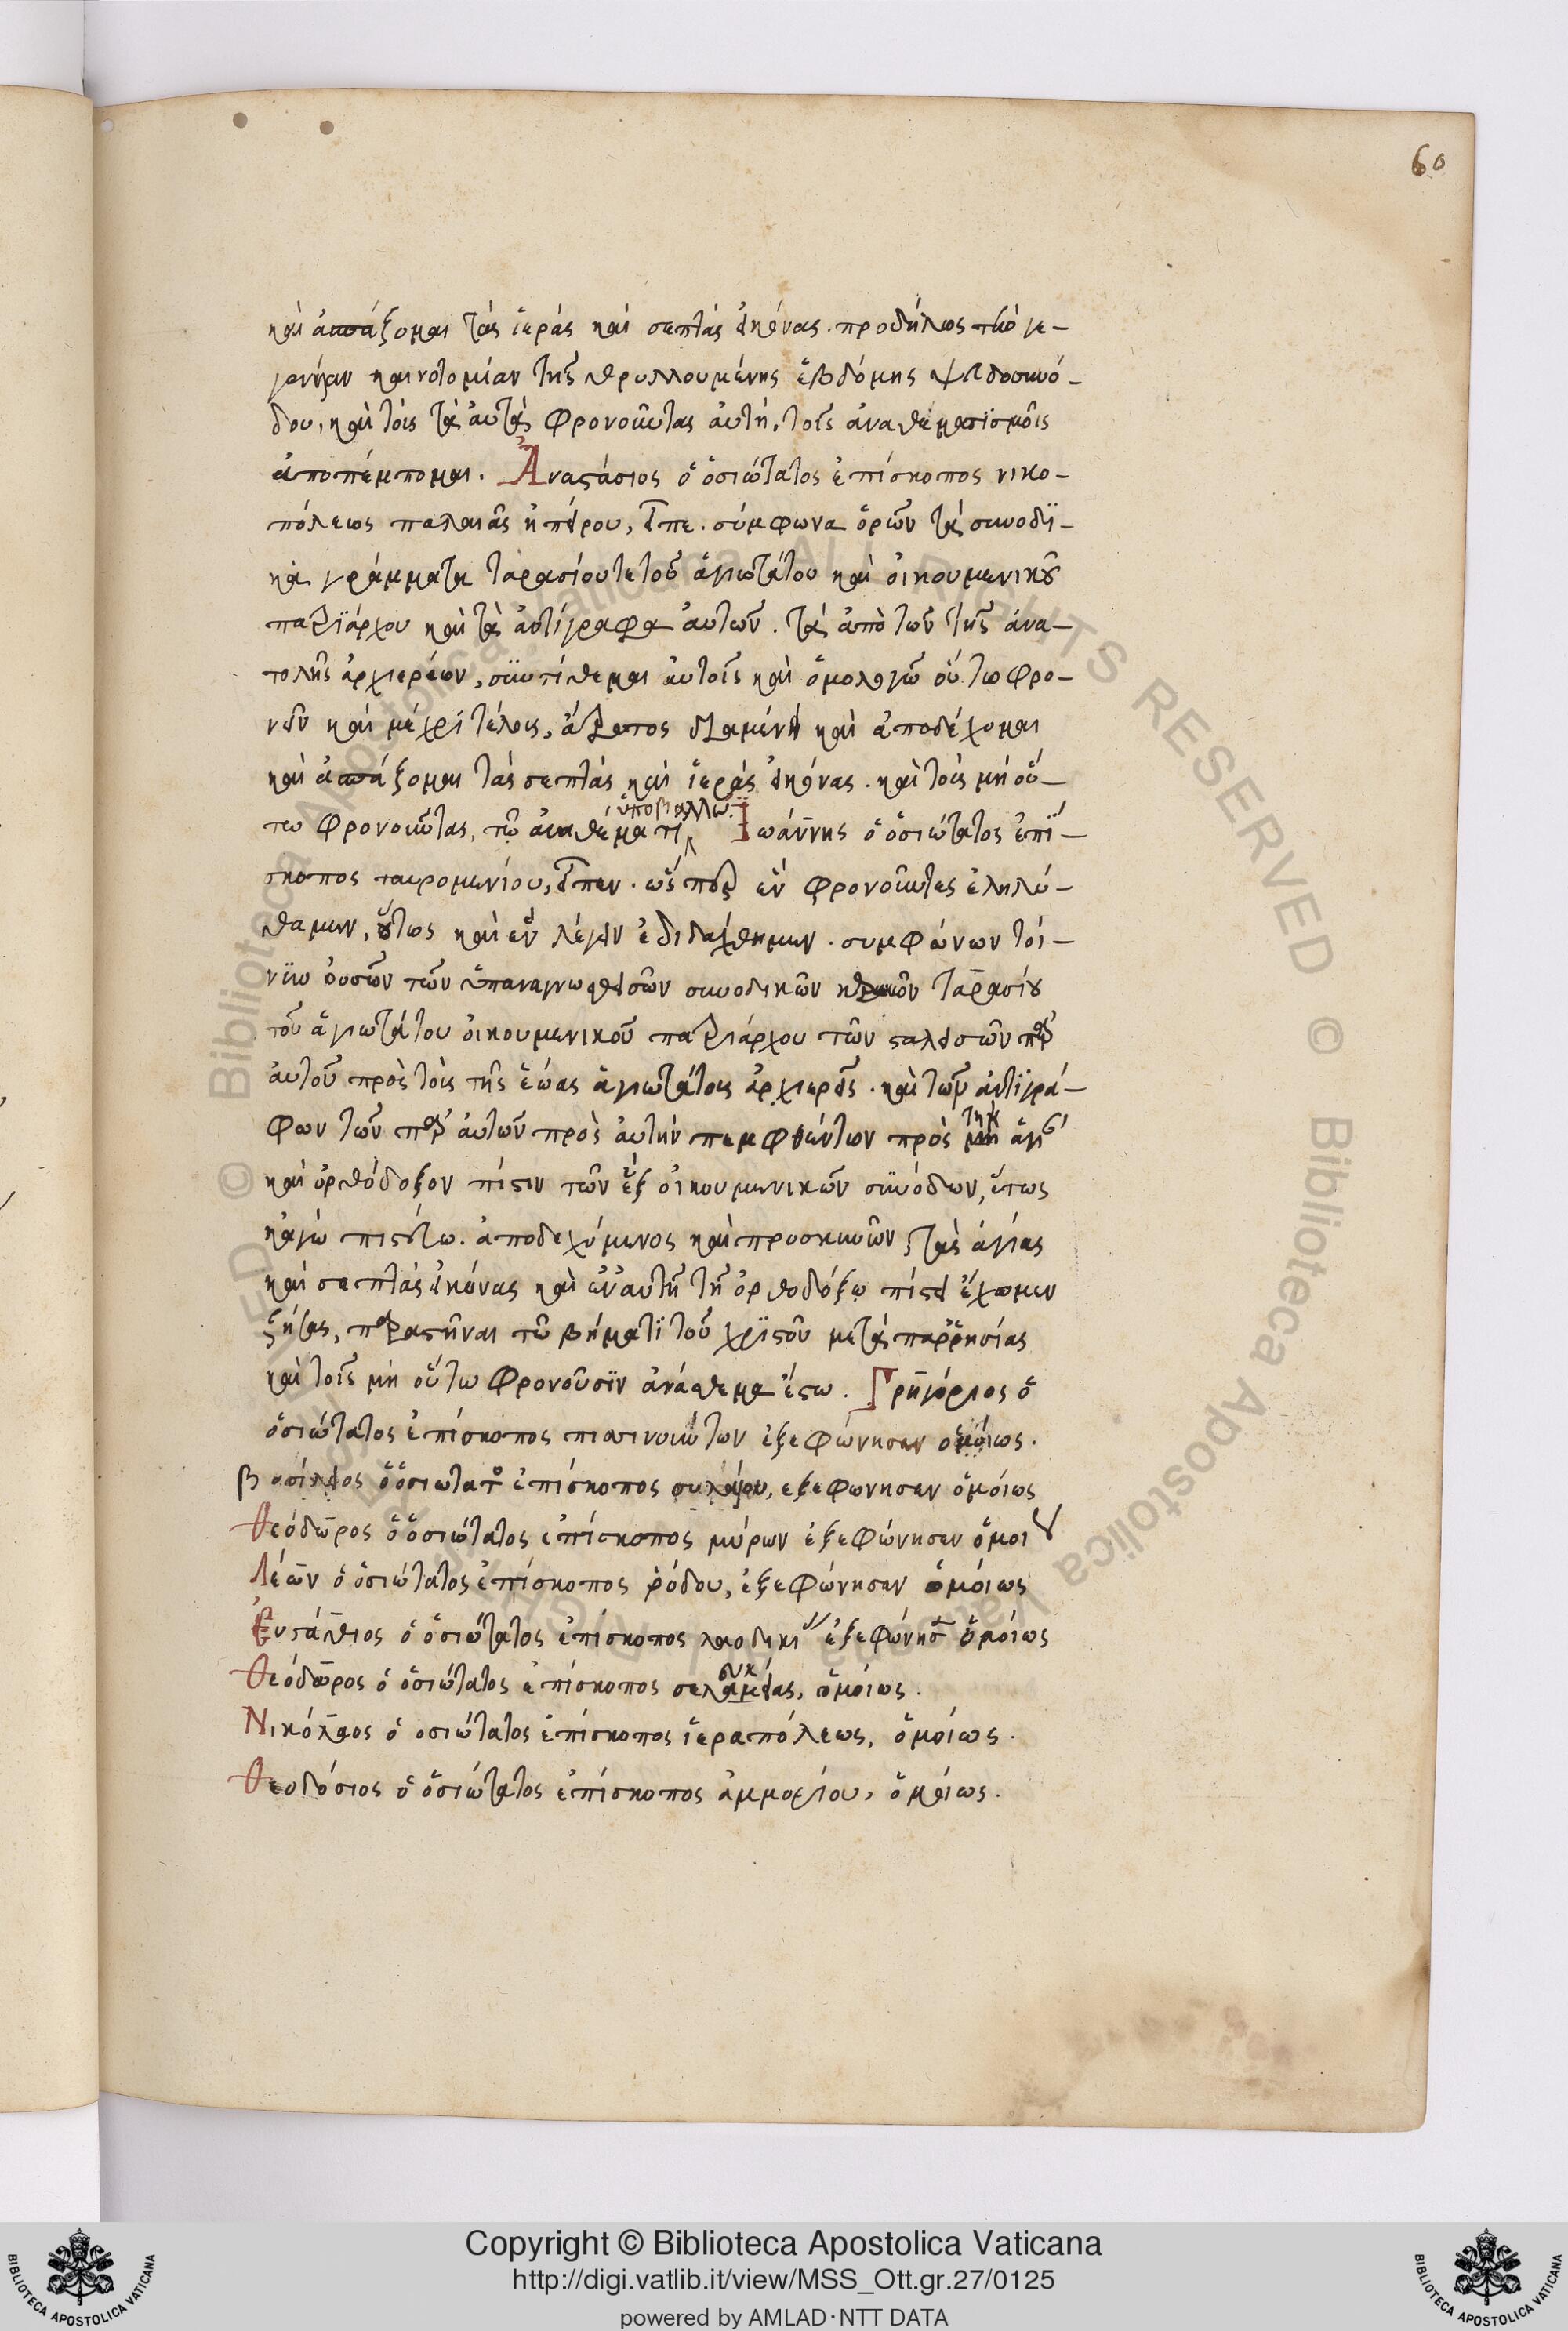 60
καὶ ἀσπάζομαι τὰς ἱερὰς καὶ σεπτὰς εἰκόνας. προδήλως τὴν γε-
γονυῖαν καινοτομίαν τῆς θρυλλουμένης ἑβδόμης ψευδοσυνό-
δου, καὶ τοὺς τὰ αὐτὰ φρονοῦντας αὐτῆ, τοῖς ἀναθεματισμοῖς
ἀποπέμπομαι. Ἀναστάσιος ὁ ὁσιώτατος ἐπίσκοπος νικο-
πόλεως παλαιᾶς ἠπείρου, εἶπε. σύμφωνα ὁρῶν τὰ συνοδϊ-
κὰ γράμματα ταρασίου τε τοῦ ἁγιωτάτου καὶ οἰκουμενικοῦ
πατριάρχου καὶ τὰ ἀντίγραφα αὐτῶν. τὰ ἀπὸ τῶν τῆς ἀνα-
τολῆς ἀρχιερέων, συντίθεμαι αὐτοῖς καὶ ὁμολογῶ οὕτω φρο-
νεῖν καὶ μέχρι τέλους, ἄτρεπτος διαμένειν καὶ ἀποδέχομαι
καὶ ἀσπάζομαι τὰς σεπτὰς καὶ ἱερὰς εἰκόνας. καὶ τοὺς μὴ οὕ-
τω φρονοῦντας, τῶ ἀναθέματι ὑποβάλλω. Ἰωάννης ὁ ὁσιώτατος ἐπί-
σκοπος ταυρομενίου, εἶπεν. ὥσπερ ἓν φρονοῦντες ἐληλύ-
θαμεν, οὕτως καὶ ἓν λέγειν ἐδιδάχθημεν. συμφώνων τοί-
νυν οὐσῶν τῶν ἐπαναγνωσθεισῶν συνοδικῶν ταρασίου
τοῦ ἁγιωτάτου οἰκουμενικοῦ πατριάρχου τῶν σταλεισῶν παρ'
αὐτοῦ πρὸς τοὺς τῆς ἑώας ἁγιωτάτους ἀρχιερεῖς. καὶ τῶν ἀντιγρά-
φων τῶν παρ' αὐτῶν πρὸς αὐτὴν πεμφθέντων πρὸς τὴν ἁγί
καὶ ὀρθόδοξον πίστιν τῶν ἓξ οἰκουμενικῶν συνόδων, οὕτως
κἀγὼ πιστεύω. ἀποδεχόμενος καὶ προσκυνῶν, τὰς ἁγίας
καὶ σεπτὰς εἰκόνας καὶ ἐν αὐτῆ τῆ ὀρθοδόξω πίστει ἔχωμεν
ζήσας, παραστῆναι τῶ βήματι τοῦ χριστοῦ μετὰ παρρησίας
καὶ τοῖς μὴ οὕτω φρονοῦσιν ἀνάθεμα ἔστω. Γρηγόριος ὁ
ὁσιώτατος ἐπίσκοπος πισινουώτων ἐξεφώνησεν ὁμοίως.
βασίλειος ὁ ὁσιώτατος ἐπίσκοπος συλαίου, ἐξεφώνησεν ὁμοίως
Θεόδωρος ὁ ὁσιώτατος ἐπίσκοπος μύρων ἐξεφώνησεν ὁμοι
Λέων ὁ ὁσιώτατος ἐπίσκοπος ῥόδου, ἐξεφώνησεν ὁμοίως
Εὐστάθιος ὁ ὁσιώτατος ἐπίσκοπος λαοδικι ἐξεφώνησ ὁμοίως
Θεόδωρος ὁ ὁσιώτατος ἐπίσκοπος σελευκείας, ὁμοίως.
Νικόλαος ὁ ὁσιώτατος ἐπίσκοπος ἱεραπόλεως, ὁμοίως.
Θεοδόσιος ὁ ὁσιώτατος ἐπίσκοπος ἀμμορίου, ὁμοίως.
Copyright © Biblioteca Apostolica Vaticana
http://digi.vatlib.it/view/MSS_Ott.gr.27/0125
powered by AMLAD·NTT DATA